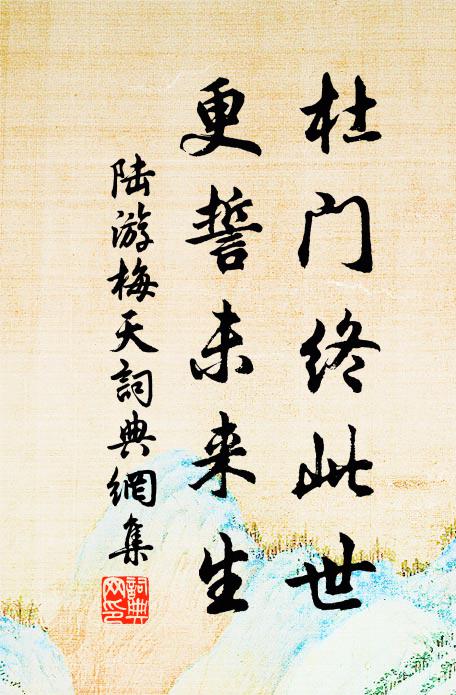 杜门终此世
更誓未来生
陆游梅天詞典網集
詞典网印